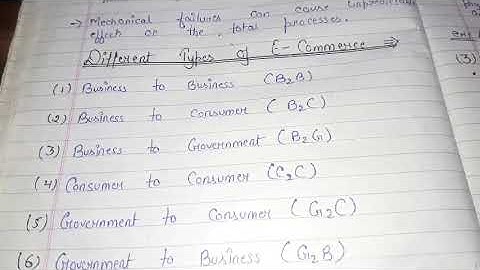 → Mechanical failures can cause
effect on the total processes.
Different Types of E-Commerce
(1) Business to Business (B2B)
(2) Business to Consumer (B2C)
(3) Business to Government (B2G)
(4) Consumer to Consumer (C2C)
(5) Government to Consumer (G2C)
(6) Government to Business (G2B)
(3)